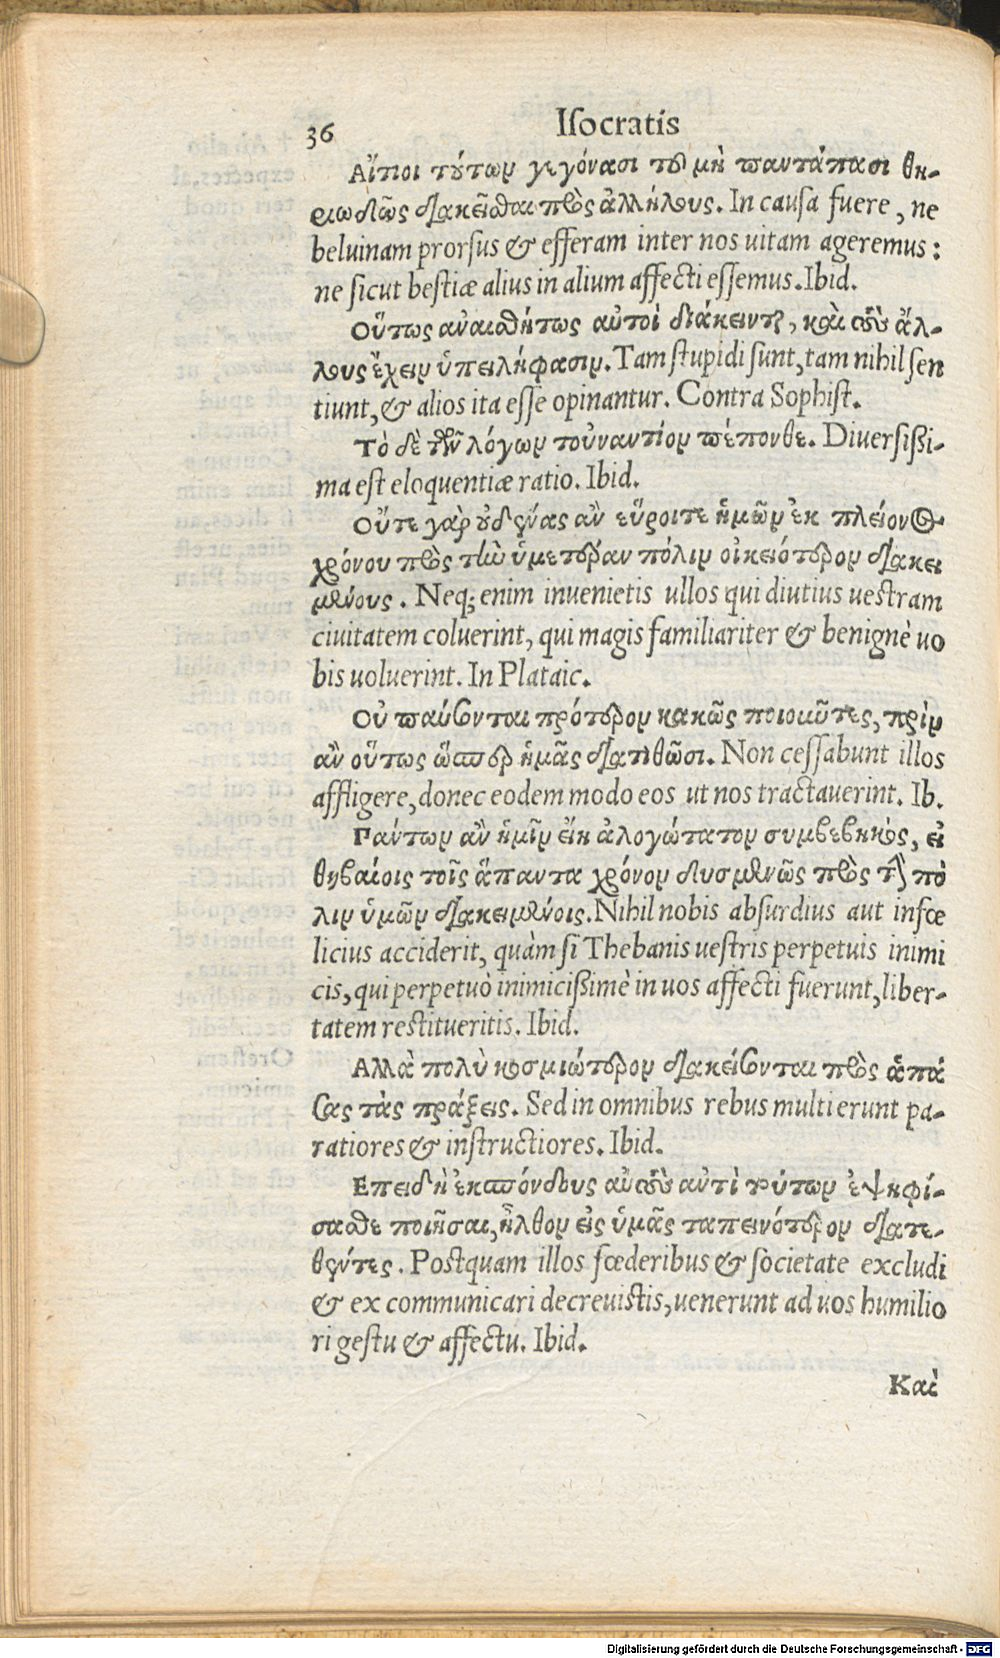 36 Iſocratis
Αἴτιοι τούτων γεγόνασι τοῦ μὴ παντάπασι θη-
ριωδῶς διακεῖσθαι πρὸς ἀλλήλους. In cauſa fuere, ne
beluinam prorſus & efferam inter nos uitam ageremus:
ne ſicut beſtiæ alius in alium affecti eſſemus. Ibid.
Οὕτως ἀναισθήτως αὐτοί διάκεινται, καὶ τοὺς ἄλ-
λους ἔχειν ὑπειλήφασιν. Tam ſtupidi ſunt, tam nihil ſen
tiunt, & alios ita eſſe opinantur. Contra Sophiſt.
Τὸ δὲ τῶν λόγων τοὐναντίον πέπονθε. Diuerſißi-
ma eſt eloquentiæ ratio. Ibid.
Οὔτε γὰρ οὐδένας ἂν εὕροιτε ἡμῶν ἐκ πλείονος
χρόνου πρὸς τὴν ὑμετέραν πόλιν οἰκειότερον διακει
μένους. Neq; enim inuenietis ullos qui diutius ueſtram
ciuitatem coluerint, qui magis familiariter & benignè uo
bis uoluerint. In Plataic.
Οὐ παύσονται πρότερον κακῶς ποιοῦντες, πρὶν
ἂν οὕτως ὥσπερ ἡμᾶς διατιθῶσι. Non ceſſabunt illos
affligere, donec eodem modo eos ut nos tractauerint. Ib.
Πάντων ἂν ἡμῖν εἴη ἀλογώτατον συμβεβηκὸς, εἰ
θηβαίοις τοῖς ἅπαντα χρόνον δυσμενῶς πρὸς τὴν πό
λιν ὑμῶν διακειμένοις. Nihil nobis abſurdius aut infœ
licius acciderit, quàm ſi Thebanis ueſtris perpetuis inimi
cis, qui perpetuò inimicißimè in uos affecti fuerunt, liber-
tatem reſtitueritis. Ibid.
Αλλὰ πολὺ κοσμιώτερον διακείσονται πρὸς ἁπά
σας τὰς πράξεις. Sed in omnibus rebus multi erunt pa-
ratiores & inſtructiores. Ibid.
Επειδὴ ἐκσπόνδους αὐτοὺς αὐτὶ τούτων ἐψηφί-
σασθε ποιῆσαι, ἦλθον εἰς ὑμᾶς ταπεινότερον διατε-
θέντες. Poſtquam illos fœderibus & ſocietate excludi
& ex communicari decreuiſtis, uenerunt ad uos humilio
ri geſtu & affectu. Ibid.
Καὶ
Digitalisierung gefördert durch die Deutsche Forschungsgemeinschaft - DFG